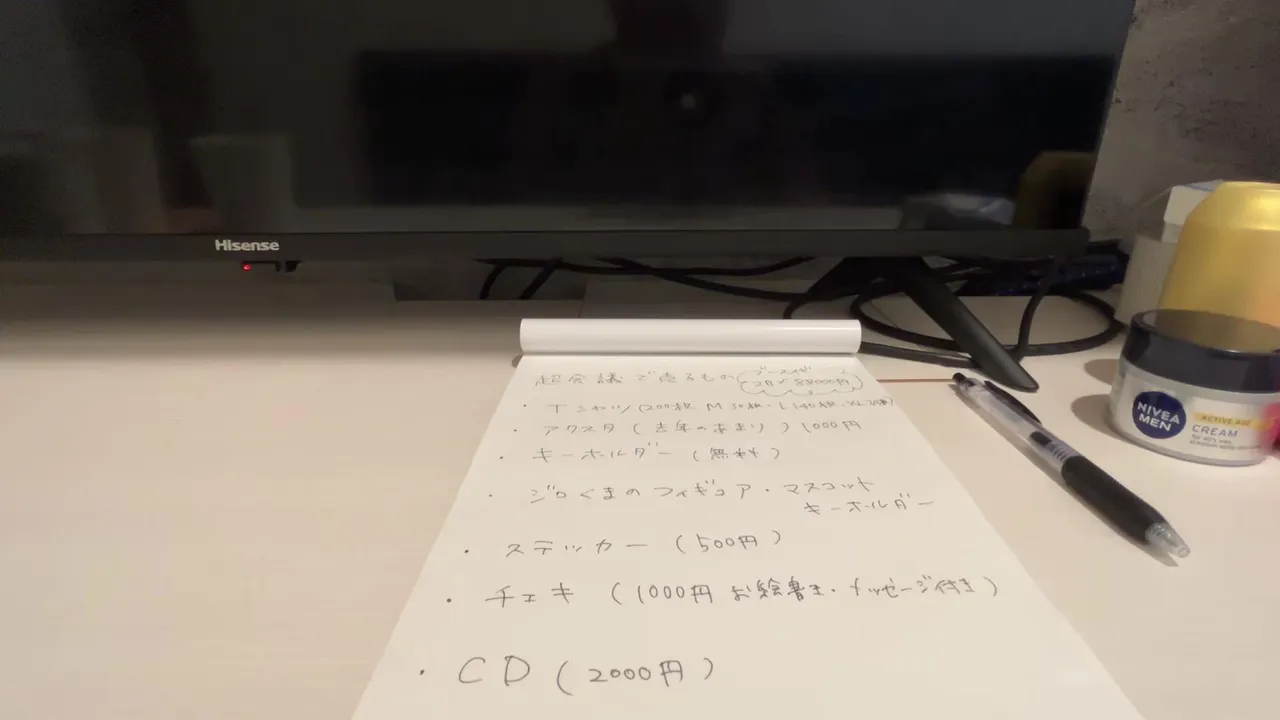 Hisense
超会議で売るもの
ブースイボ
2日で88000円
・Tシャツ(200枚 M 50枚・L 140枚・XL
・アクスタ(去年のあまり)1000円
・キーホルダー(無料)
・ジロくまのフィギュア・マスコット
キーホルダー
・ステッカー(500円)
・チェキ(1000円 お絵書き・メッセージ付き)
・CD(2000円)
NIVEA
MEN
ACTIVE AGE
CREAM